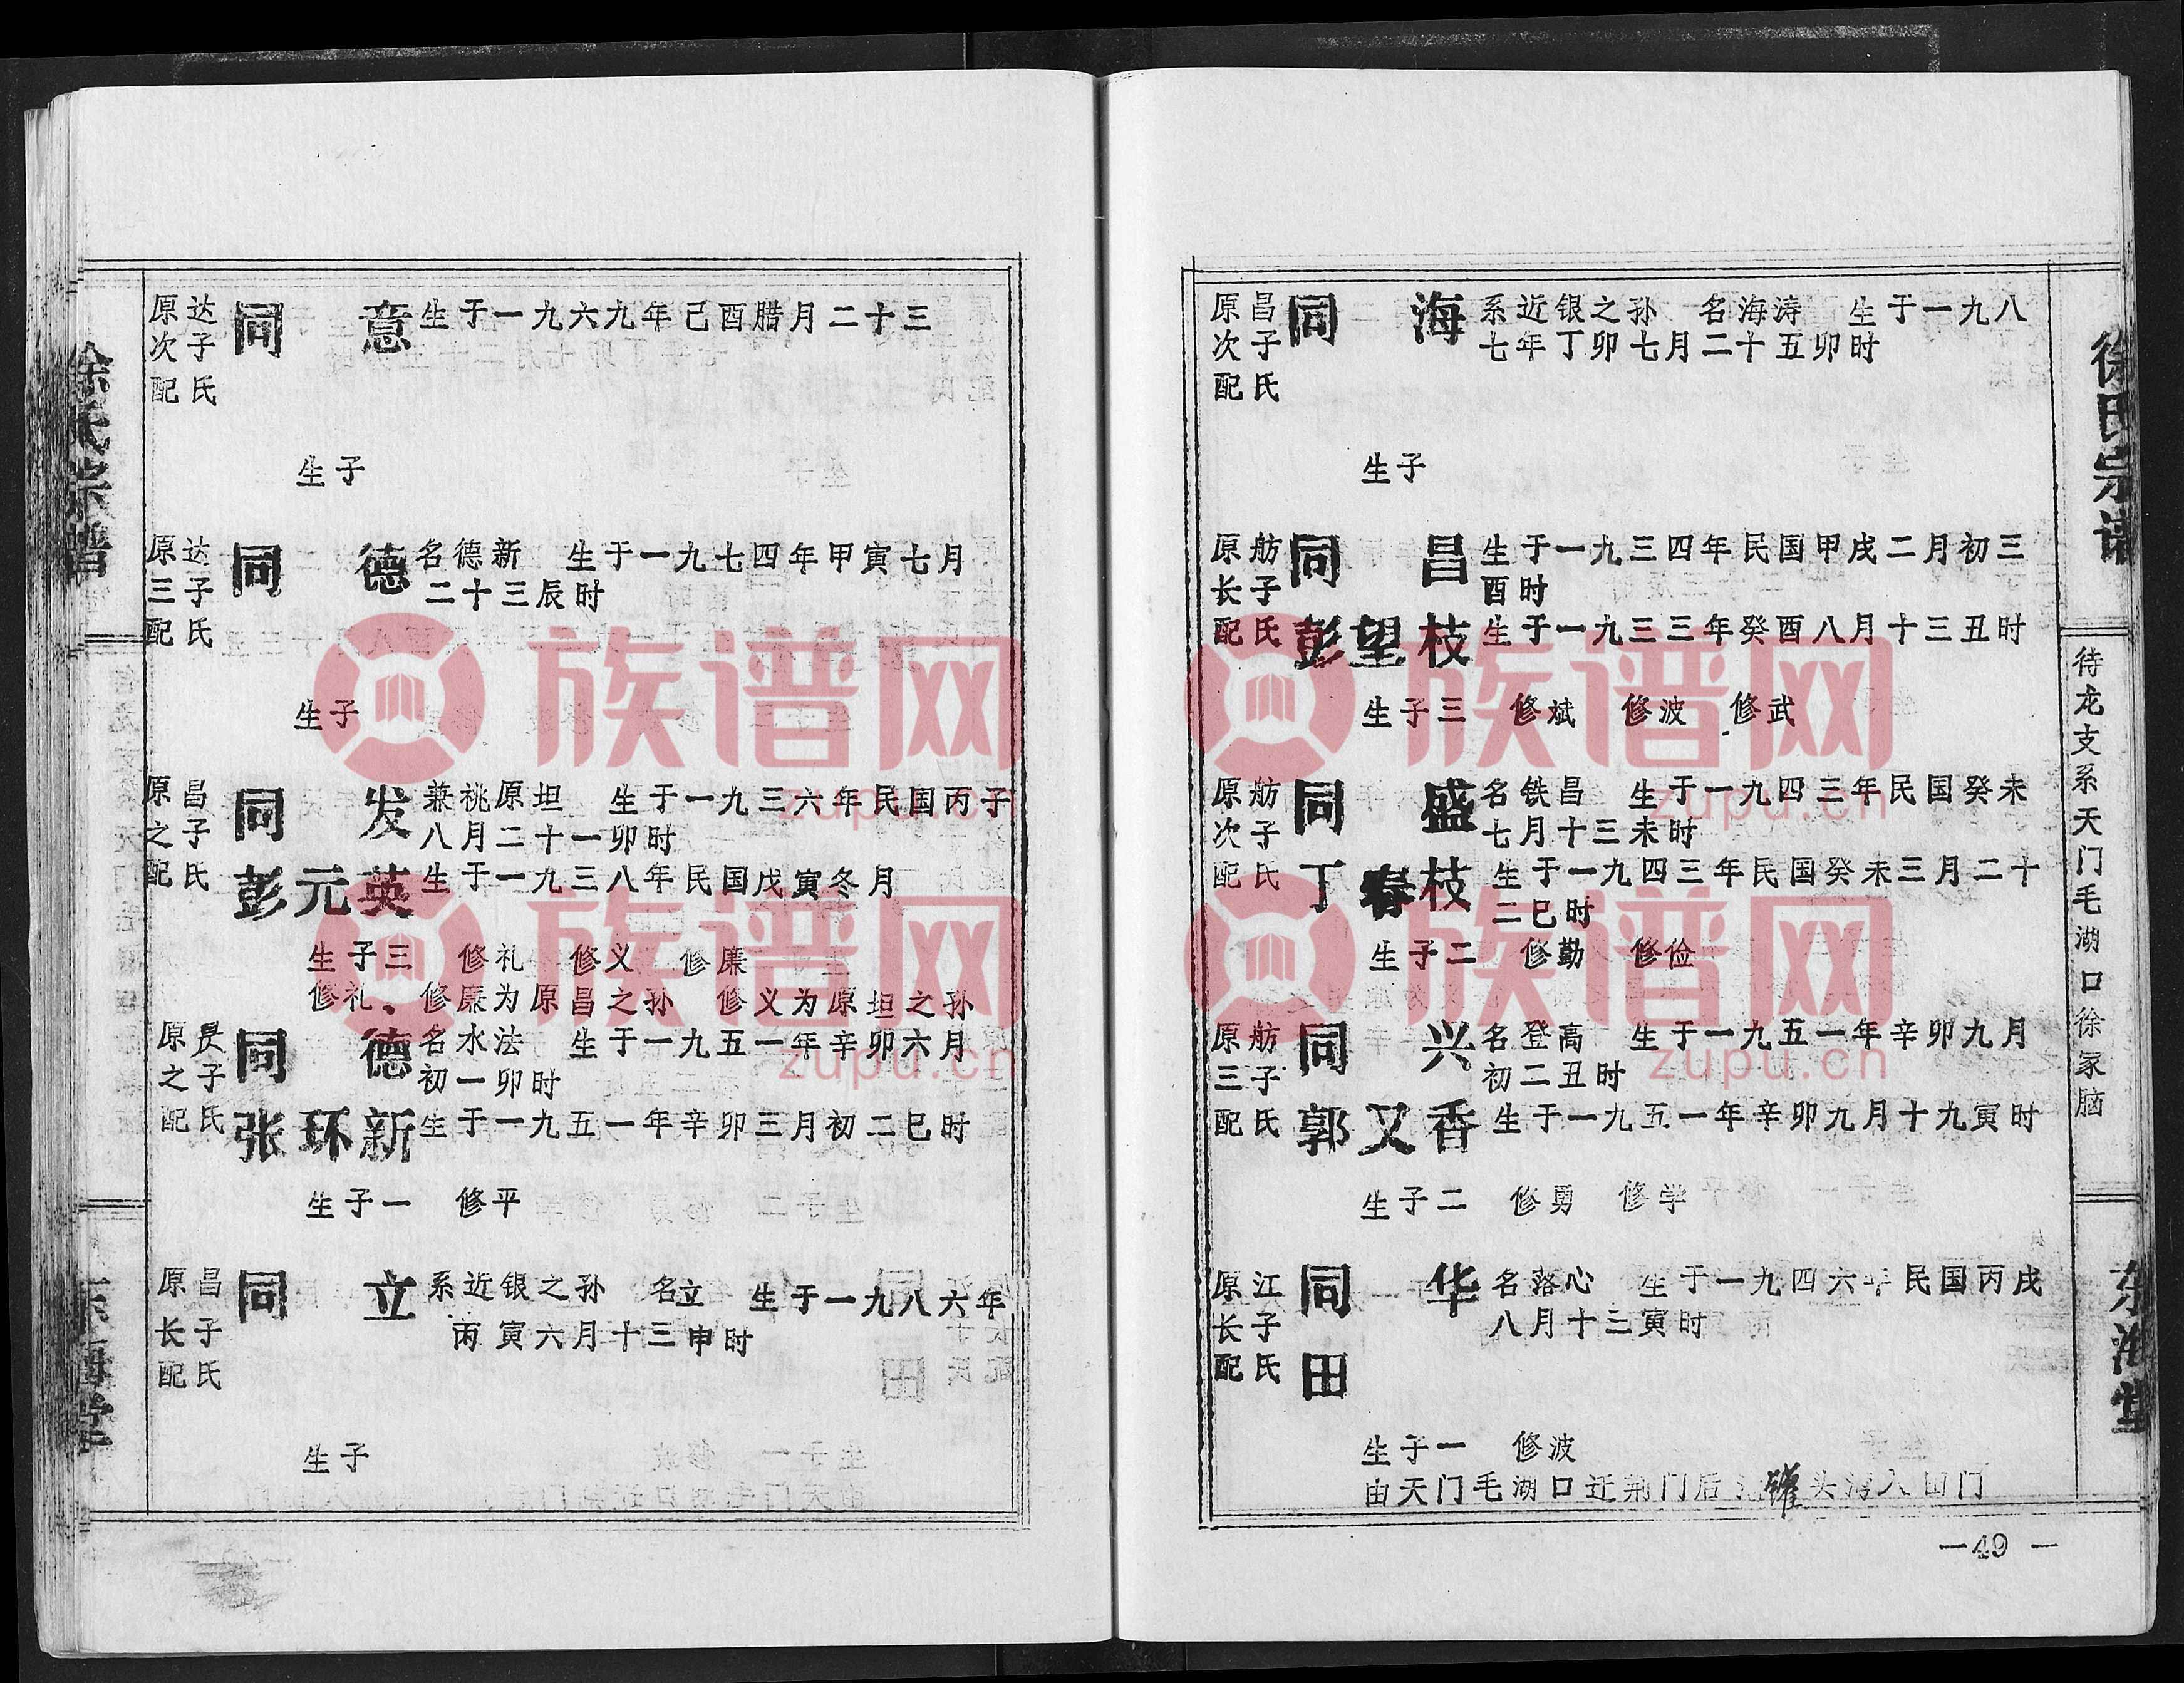 徐氏宗谱
东海堂
原达
次子
配氏
同 意 生于一九六九年己酉腊月二十三
生子
原达
三子
配氏
同 德 名德新 生于一九七四年甲寅七月
二十三辰时
生子
原昌
之子
配氏
同 发 兼祧原坦 生于一九三六年民国丙子
八月二十一卯时
彭元英 生于一九三八年民国戊寅冬月
生子三 修礼 修义 修廉
修礼、修廉为原昌之孙 修义为原坦之孙
原
之子
配氏
同 德 名水法 生于一九五一年辛卯六月
初一卯时
张环新 生于一九五一年辛卯三月初二巳时
生子一 修平
原昌
长子
配氏
同 立 系近银之孙 名立 生于一九八六年
丙寅六月十三申时
生子
原昌
次子
配氏
同 海 系近银之孙 名海涛 生于一九八
七年丁卯七月二十五卯时
生子
原舫
长子
配氏
同 昌 生于一九三四年民国甲戌二月初三
酉时
彭望枝 生于一九三三年癸酉八月十三丑时
生子三 修斌 修波 修武
原舫
次子
配氏
同 盛 名铁昌 生于一九四三年民国癸未
七月十三未时
丁春枝 生于一九四三年民国癸未三月二十
二巳时
生子二 修勤 修俭
原舫
三子
配氏
同 兴 名登高 生于一九五一年辛卯九月
初二丑时
郭又香 生于一九五一年辛卯九月十九寅时
生子二 修勇 修学
原江
长子
配氏
同 华 名落心 生于一九四六年民国丙戌
八月十三寅时
同
田
生子一 修波
由天门毛湖口迁荆门后 罐头湾人
徐氏宗谱
待龙支系天门毛湖口徐家脑
东海堂
—49—
族谱网
zupu.cn
族谱网
zupu.cn
族谱网
zupu.cn
族谱网
zupu.cn